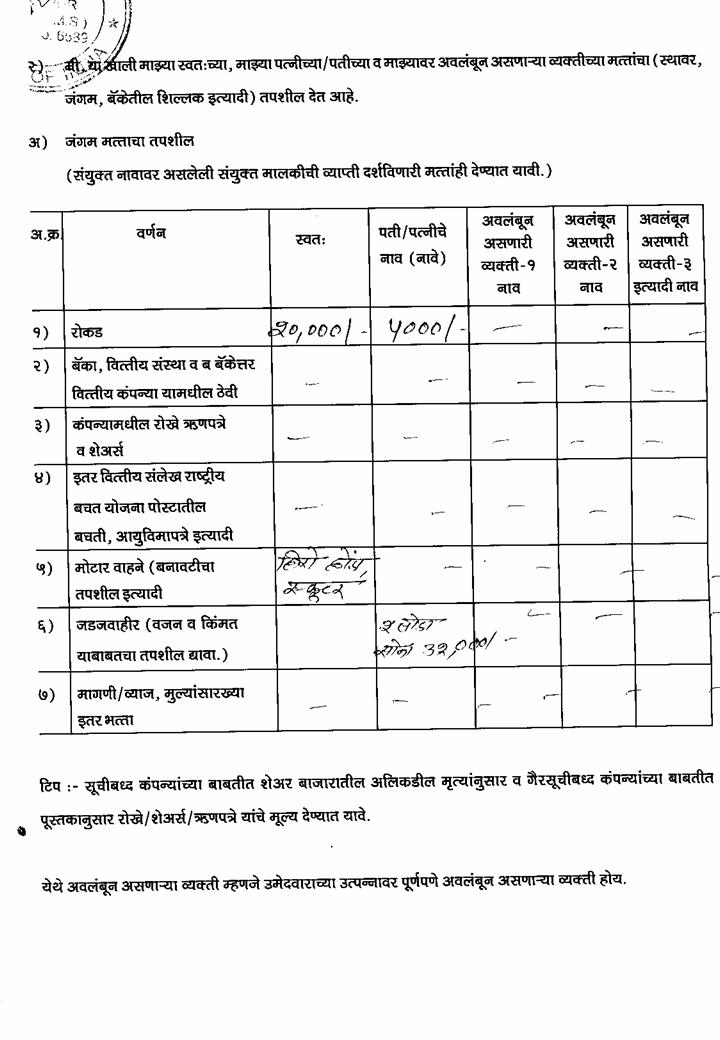 M.S.)
6639
OF INDIA
२) मी. या खाली माझ्या स्वतःच्या, माझ्या पत्नीच्या/पतीच्या व माझ्यावर अवलंबून असणाऱ्या व्यक्तीच्या मत्तांचा (स्थावर,
जंगम, बॅकेतील शिल्लक इत्यादी) तपशील देत आहे.
अ) जंगम मत्ताचा तपशील
(संयुक्त नावावर असलेली संयुक्त मालकीची व्याप्ती दर्शविणारी मत्तांही देण्यात यावी.)
अ.क्र वर्णन स्वतः पती/पत्नीचे नाव (नावे) अवलंबून असणारी व्यक्ती-१ नाव अवलंबून असणारी व्यक्ती-२ नाव अवलंबून असणारी व्यक्ती-३ इत्यादी नाव
१) रोकड २०,०००/- ५०००/- — — —
२) बॅका, वित्तीय संस्था व ब बॅकेत्तर
वित्तीय कंपन्या यामधील ठेवी — — — — —
३) कंपन्यामधील रोखे ऋणपत्रे — — — — —
व शेअर्स
४) इतर वित्तीय संलेख राष्ट्रीय
बचत योजना पोस्टातील — — — — —
बचती, आयुविमापत्रे इत्यादी
५) मोटार वाहने (बनावटीचा हिरो होंडा, — — — —
तपशील इत्यादी स्कूटर
६) जडजवाहीर (वजन व किंमत २ तोळा — —
याबाबतचा तपशील द्यावा.) सोने ३२,०००/-
७) मागणी/व्याज, मुल्यांसारख्या — — — — —
इतर भत्ता
टिप :- सूचीबध्द कंपन्यांच्या बाबतीत शेअर बाजारातील अलिकडील मृत्यांनुसार व गैरसूचीबध्द कंपन्यांच्या बाबतीत
पूस्तकानुसार रोखे/शेअर्स/ऋणपत्रे यांचे मूल्य देण्यात यावे.
येथे अवलंबून असणाऱ्या व्यक्ती म्हणजे उमेदवाराच्या उत्पन्नावर पूर्णपणे अवलंबून असणाऱ्या व्यक्ती होय.